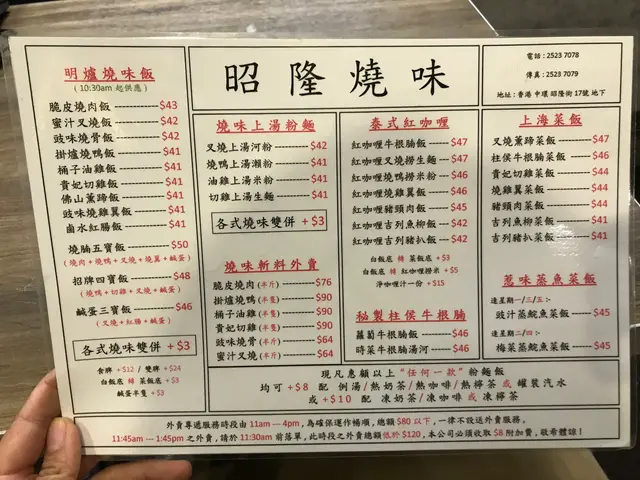 昭隆燒味
電話 : 2523 7078
傳真 : 2523 7079
地址 : 香港 中環 昭隆街 17號 地下
明爐燒味飯
(10:30am 起供應)
脆皮燒肉飯 $43
蜜汁叉燒飯 $42
豉味燒骨飯 $42
掛爐燒鴨飯 $41
桶子油雞飯 $41
貴妃切雞飯 $41
佛山薰蹄飯 $41
豉味燒雞翼飯 $41
鹵水紅腸飯 $41
燒腩五寶飯 $50
(燒肉+燒鴨+叉燒+燒翼+鹹蛋)
招牌四寶飯 $48
(燒鴨+切雞+叉燒+鹹蛋)
鹹蛋三寶飯 $46
(叉燒+紅腸+鹹蛋)
各式燒味雙併 + $3
食髀 +$12 / 雙髀 +$24
白飯底 轉 菜飯底 +$3
鹹蛋半隻 +$3
燒味上湯粉麵
叉燒上湯河粉 $42
燒鴨上湯瀨粉 $41
油雞上湯米粉 $41
切雞上湯生麵 $41
各式燒味雙併 + $3
燒味斬料外賣
脆皮燒肉(半斤) $76
掛爐燒鴨(半隻) $90
桶子油雞(半隻) $90
貴妃切雞(半隻) $90
豉味燒骨(半斤) $64
蜜汁叉燒(半斤) $64
泰式紅咖喱
紅咖喱牛根腩飯 $47
紅咖喱叉燒撈生麵 $47
紅咖喱燒鴨撈米粉 $46
紅咖喱燒雞翼飯 $46
紅咖喱豬頸肉飯 $45
紅咖喱吉列魚柳飯 $42
紅咖喱吉列豬扒飯 $42
白飯底 轉 菜飯底 +$3
白飯底 轉 紅咖喱撈米 +$5
淨咖喱汁一份 +$15
秘製柱侯牛根腩
蘿蔔牛根腩飯 $46
時菜牛根腩湯河 $46
上海菜飯
叉燒薰蹄菜飯 $47
柱侯牛根腩菜飯 $46
貴妃切雞菜飯 $44
燒雞翼菜飯 $44
豬頸肉菜飯 $44
吉列魚柳菜飯 $41
吉列豬扒菜飯 $41
惹味蒸魚菜飯
逢星期一/三/五:-
豉汁蒸鯇魚菜飯 $45
逢星期二/四:-
梅菜蒸鯇魚菜飯 $45
現凡惠顧以上"任何一款"粉麵飯
均可 +$8 配 例湯/熱奶茶/熱咖啡/熱檸茶 或 罐裝汽水
或 +$10 配 凍奶茶/凍咖啡 或 凍檸茶
外賣專遞服務時段由 11am — 4pm, 為確保運作暢順, 總額 $80 以下, 一律不設送外賣服務。
11:45am --- 1:45pm 之外賣, 請於 11:30am 前落單, 此時段之外賣總額低於 $120, 本公司必須收取 $8 附加費, 敬希體諒!